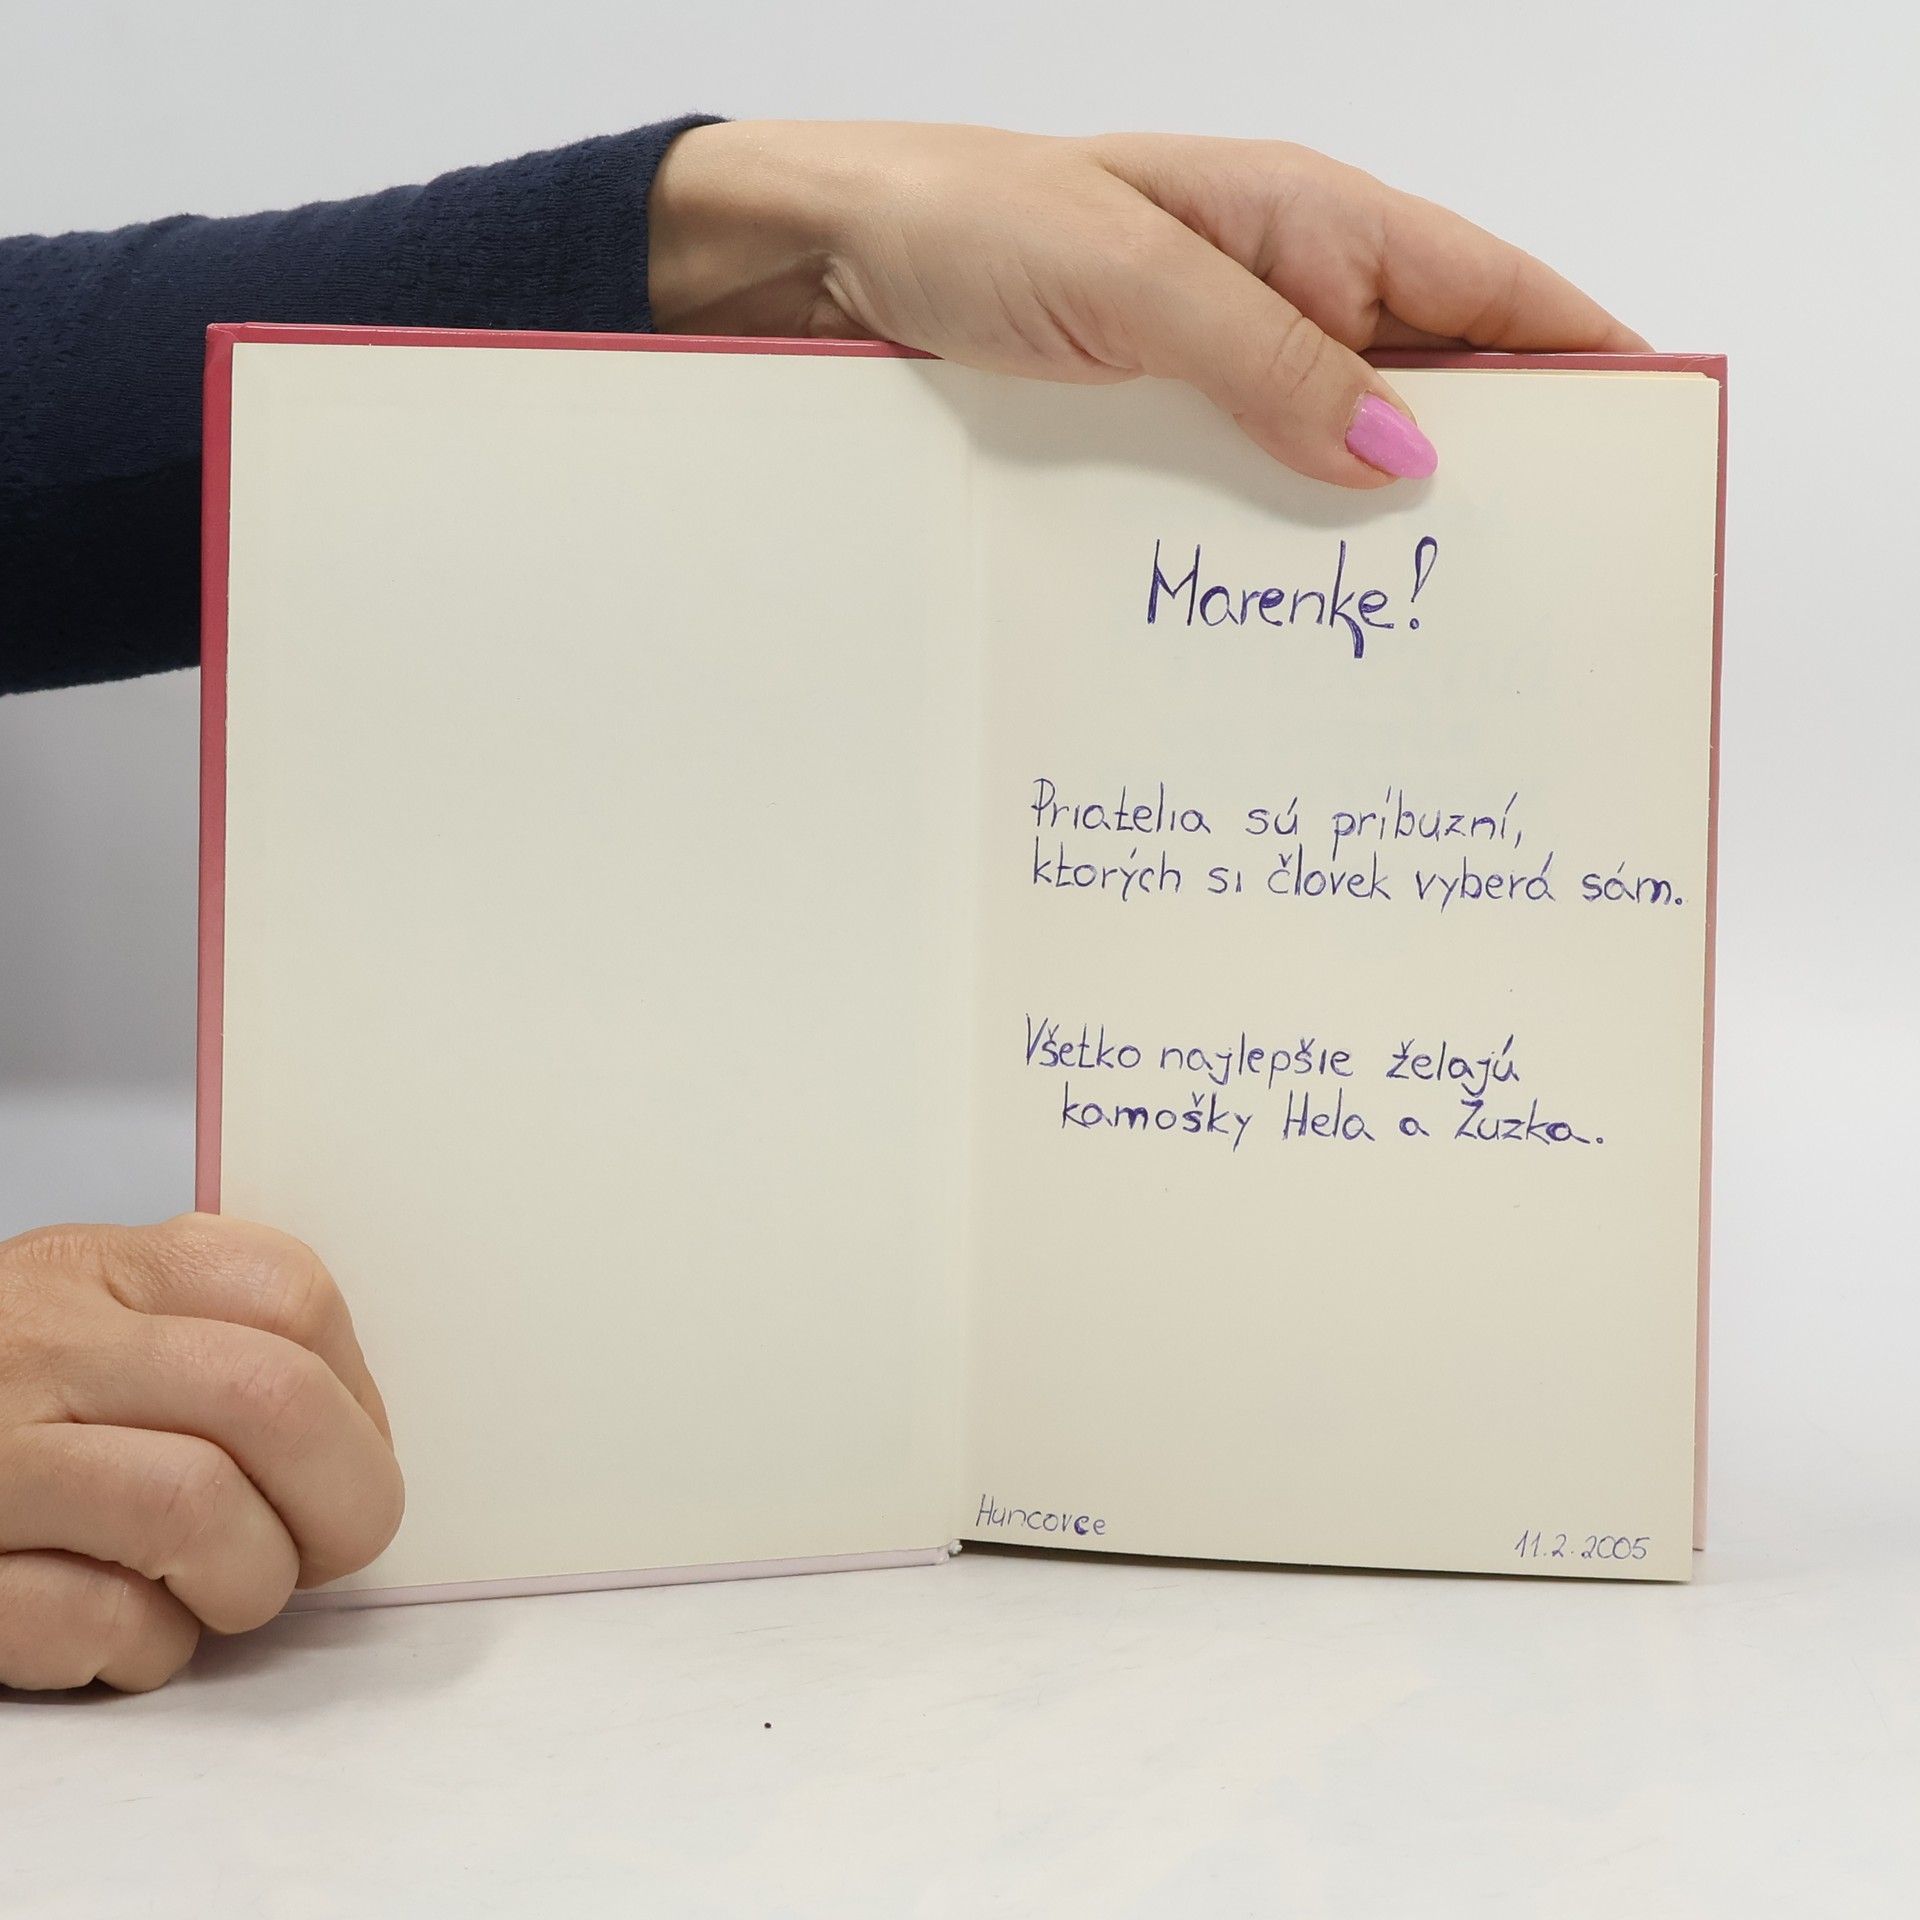 Marenke!
Priatelia sú príbuzní,
ktorých si človek vyberá sám.
Všetko najlepšie želajú
kamošky Hela a Zuzka.
Huncovce
11.2.2005